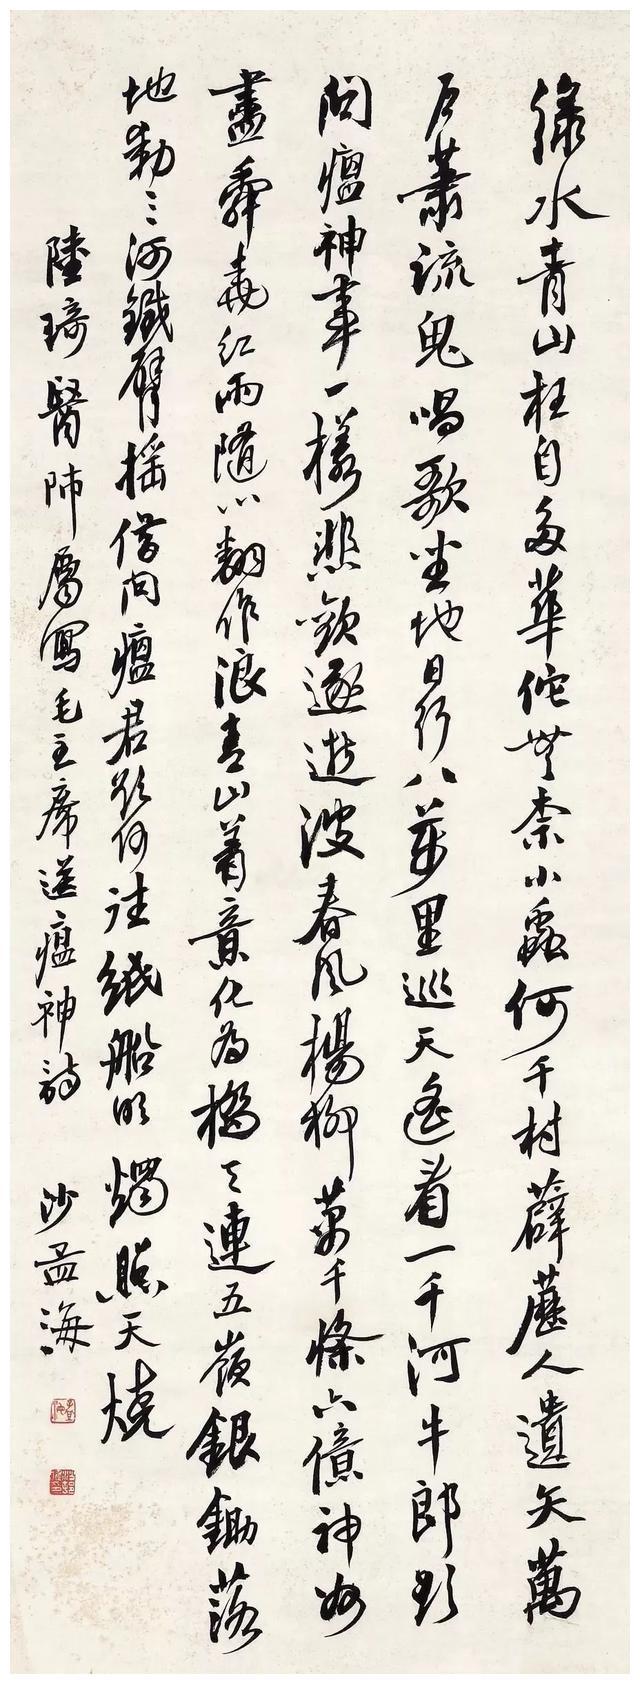 綠水青山枉自多華佗無奈小蟲何千村薜藶人遺矢萬
户蕭疏鬼唱歌坐地日行八萬里巡天遙看一千河牛郎欲
問瘟神事一樣悲歡逐逝波春風楊柳萬千條六億神州
盡舜堯紅雨隨心翻作浪青山着意化為橋天連五嶺銀鋤落
地動三河鐵臂搖借問瘟君欲何往紙船明燭照天燒
陸琦醫師屬寫毛主席送瘟神詩 沙孟海